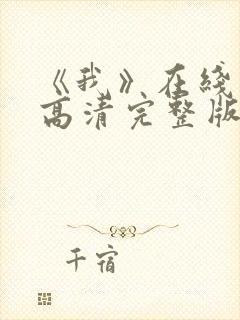 《我》在线
高清完整版
千宿